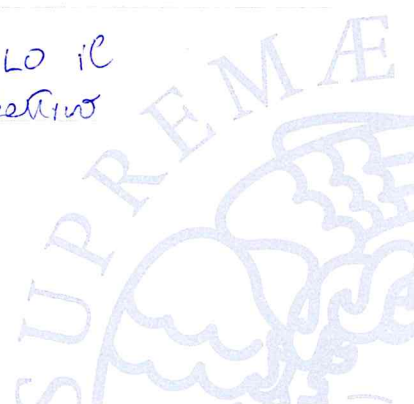 LO il
SUPREMÆ